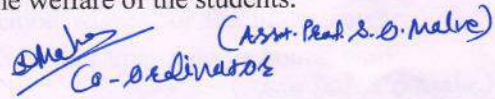 the welfare of the students.
(Asst. Prof. S. O. Malve)
Co-ordinator